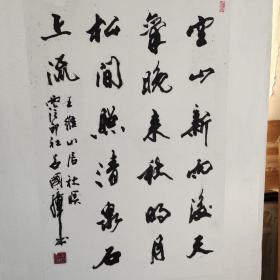 空山新雨後天
氣晚来秋明月
松間照清泉石
上流
王維山居秋暝